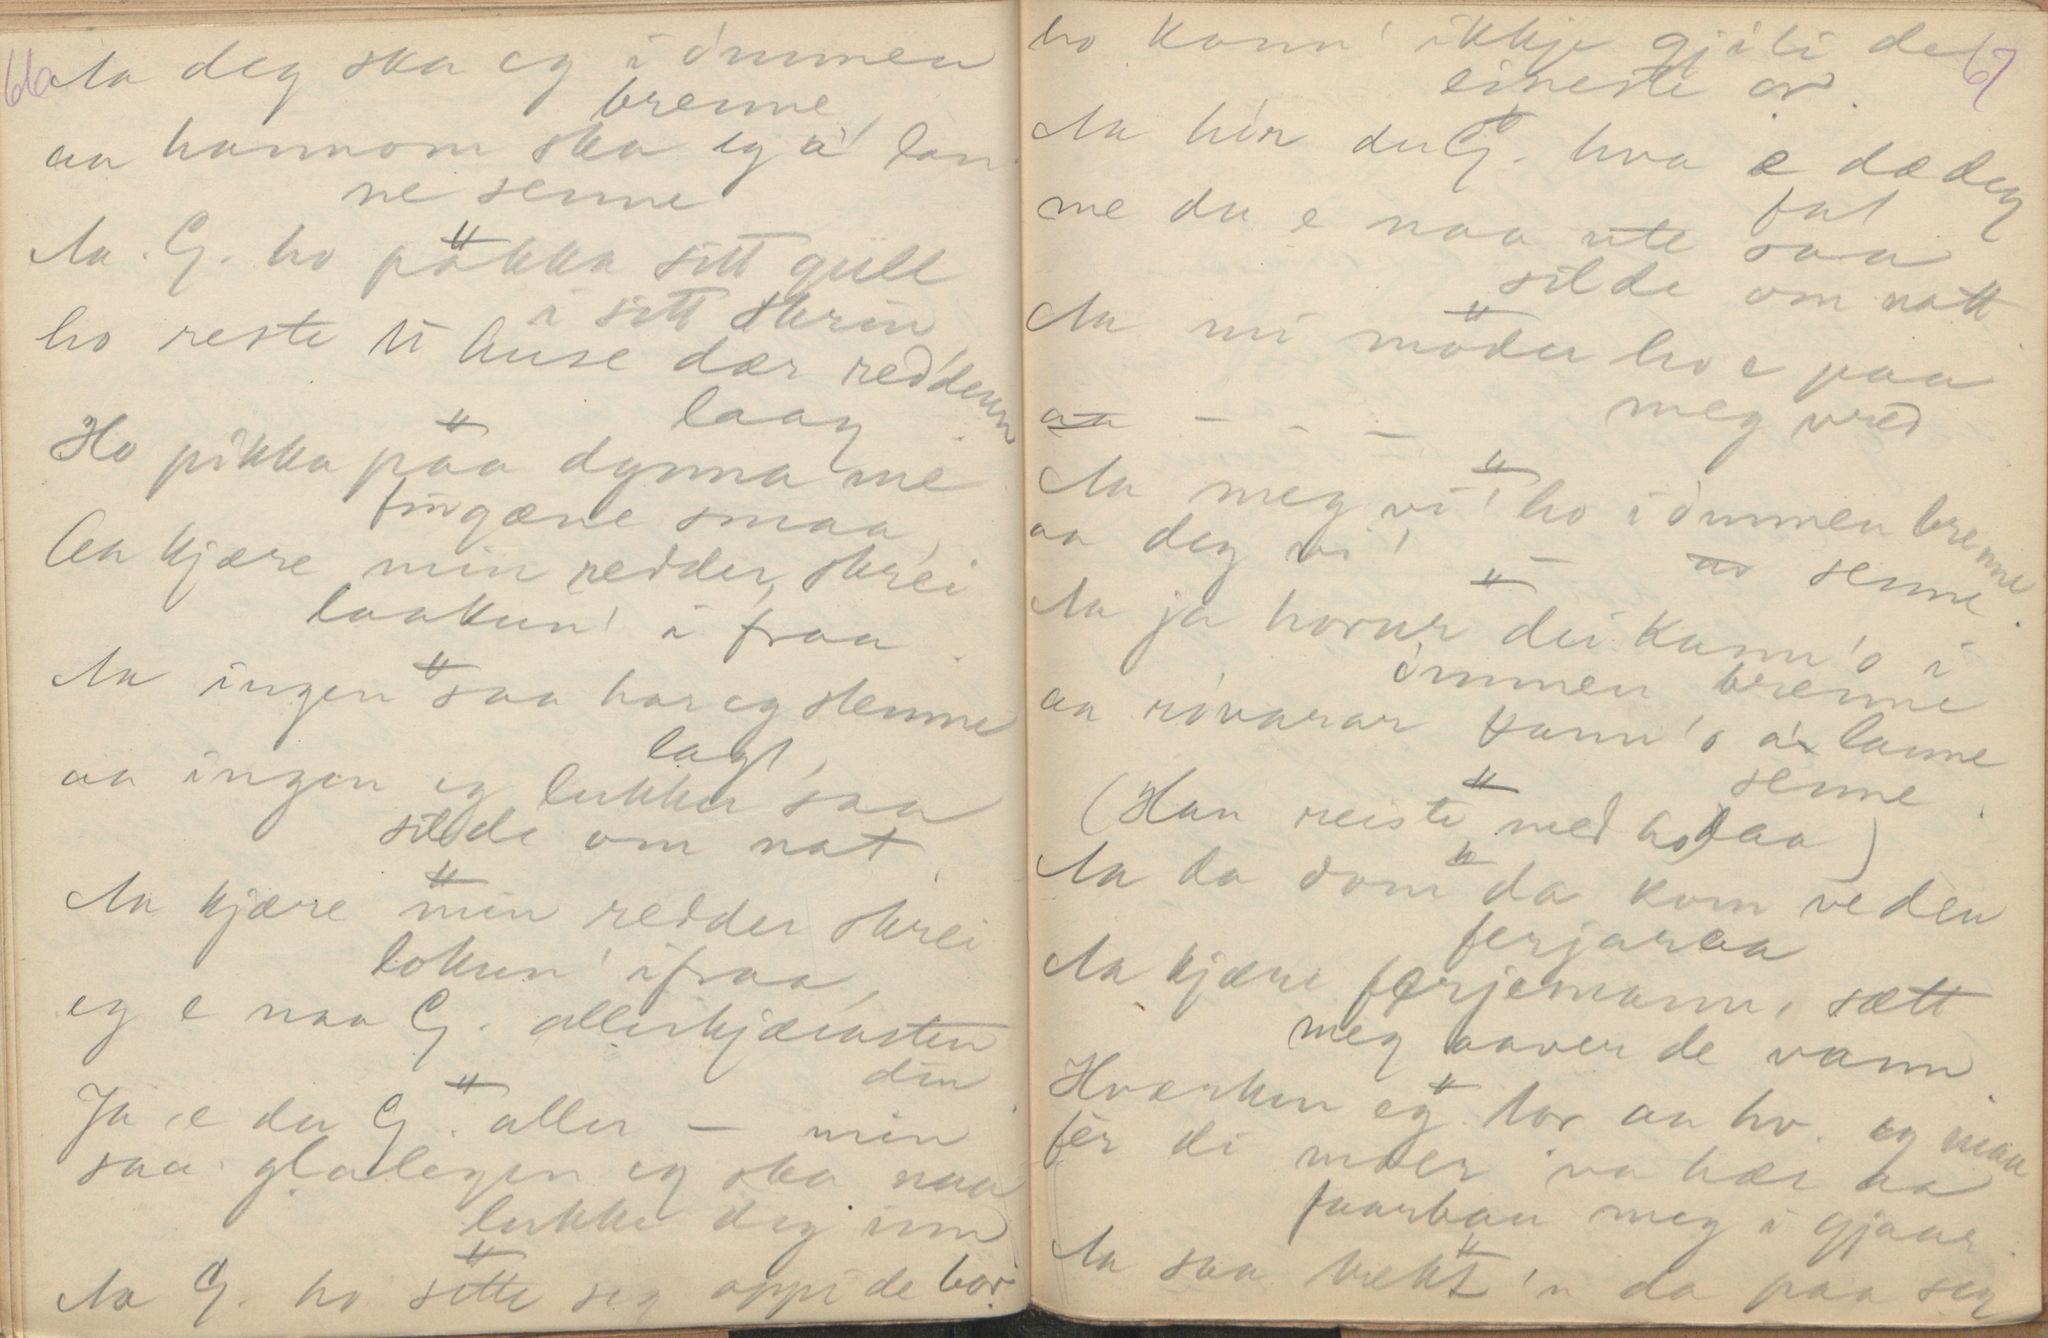 66
Aa deg ska eg i ommen
brenne
aa hannom ska eg a' lan
ne senne
Aa G. ho pakka sitt gull
i sitt skrin
ho reste ti huse dær redderen
laag
Ho pikka paa dynna me
fingæne smaa,
Aa kjære min redder, skrei
laakun' i fraa
Aa ingen saa har eg stemne
lagt,
aa ingen eg lukker saa
silde om nat
Aa kjære min redder skrei
lokun' ifraa,
eg e naa G. allerkjæreasten
din
Ja, e du G. aller — min
saa gladlegen eg ska naa
lukke dig inn
Aa G. ho sette seg oppi de bor
67
ho kann' ikkje gjiti de
eineste or.
Aa hør du G. hva e dæ deg
fat
me du e naa ute saa
silde om natt
Aa mi moder ho e paa
meg vred
aa — — —
Aa meg vi' ho i ommen brenne
aa deg vi' — senne
Aa ja horur dei kann'o i
ommen brenne
aa røvarar kann'o a' lanne
senne
(Han reiste med ho daa)
Aa da dom da kom ve den
ferjaraa
Aa kjære ferjemann, sætt
meg aaver de vann
Hværken eg tor aa ho. eg maa
før di moer va hær aa
faarbau meg i gjaar
Aa saa trekt 'n da paa seg